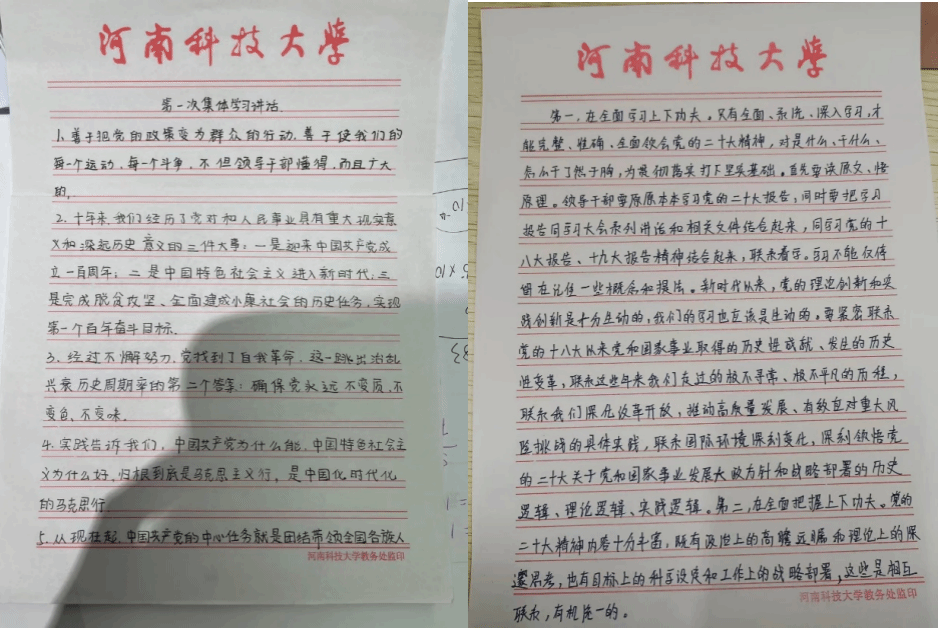 河南科技大学
第一次集体学习讲话.
1.善于把党的政策变为群众的行动.善于使我们的
每一个运动、每一个斗争、不但领导干部懂得,而且广大
的.
2.十年来.我们经历了党对和人民事业具有重大现实意
义和深远历史意义的三件大事:一是迎来中国共产党成
立一百周年;二是中国特色社会主义进入新时代;三
是完成脱贫攻坚、全面建成小康社会的历史任务.实现
第一个百年奋斗目标.
3.经过不懈努力.党找到了自我革命.这一跳出治乱
兴衰历史周期率的第二个答案:确保党永远不变质.不
变色、不变味.
4.实践告诉我们.中国共产党为什么能.中国特色社会主
义为什么好.归根到底是马克思主义行.是中国化时代化
的马克思行
5.从现在起.中国共产党的中心任务就是团结带领全国各族人
河南科技大学教务处监印
河南科技大学
第一,在全面学习上下功夫。只有全面、系统、深入学习,才
能完整、准确、全面领会党的二十大精神,对是什么、干什么、
怎么干了然于胸,为贯彻落实打下坚实基础。首先要读原文、悟
原理。领导干部要原原本本学习党的二十大报告,同时要把学习
报告同学习大会系列讲话和相关文件结合起来,同学习党的十
八大报告、十九大报告精神结合起来,联系着学。学习不能仅停
留在记住一些概念和提法。新时代以来,党的理论创新和实
践创新是十分生动的,我们的学习也应该是生动的。要紧密联系
党的十八大以来党和国家事业取得的历史性成就、发生的历史
性变革,联系这些年来我们走过的极不寻常、极不平凡的历程,
联系我们深化改革开放,推动高质量发展、有效应对重大风
险挑战的具体实践,联系国际环境深刻变化,深刻领悟党
的二十大关于党和国家事业发展大政方针和战略部署的历史
逻辑、理论逻辑、实践逻辑。第二,在全面把握上下功夫。党的
二十大精神内容十分丰富,既有政治上的高瞻远瞩和理论上的深
邃思考,也有目标上的科学设定和工作上的战略部署,这些是相互
河南科技大学教务处监印
联系,有机统一的。